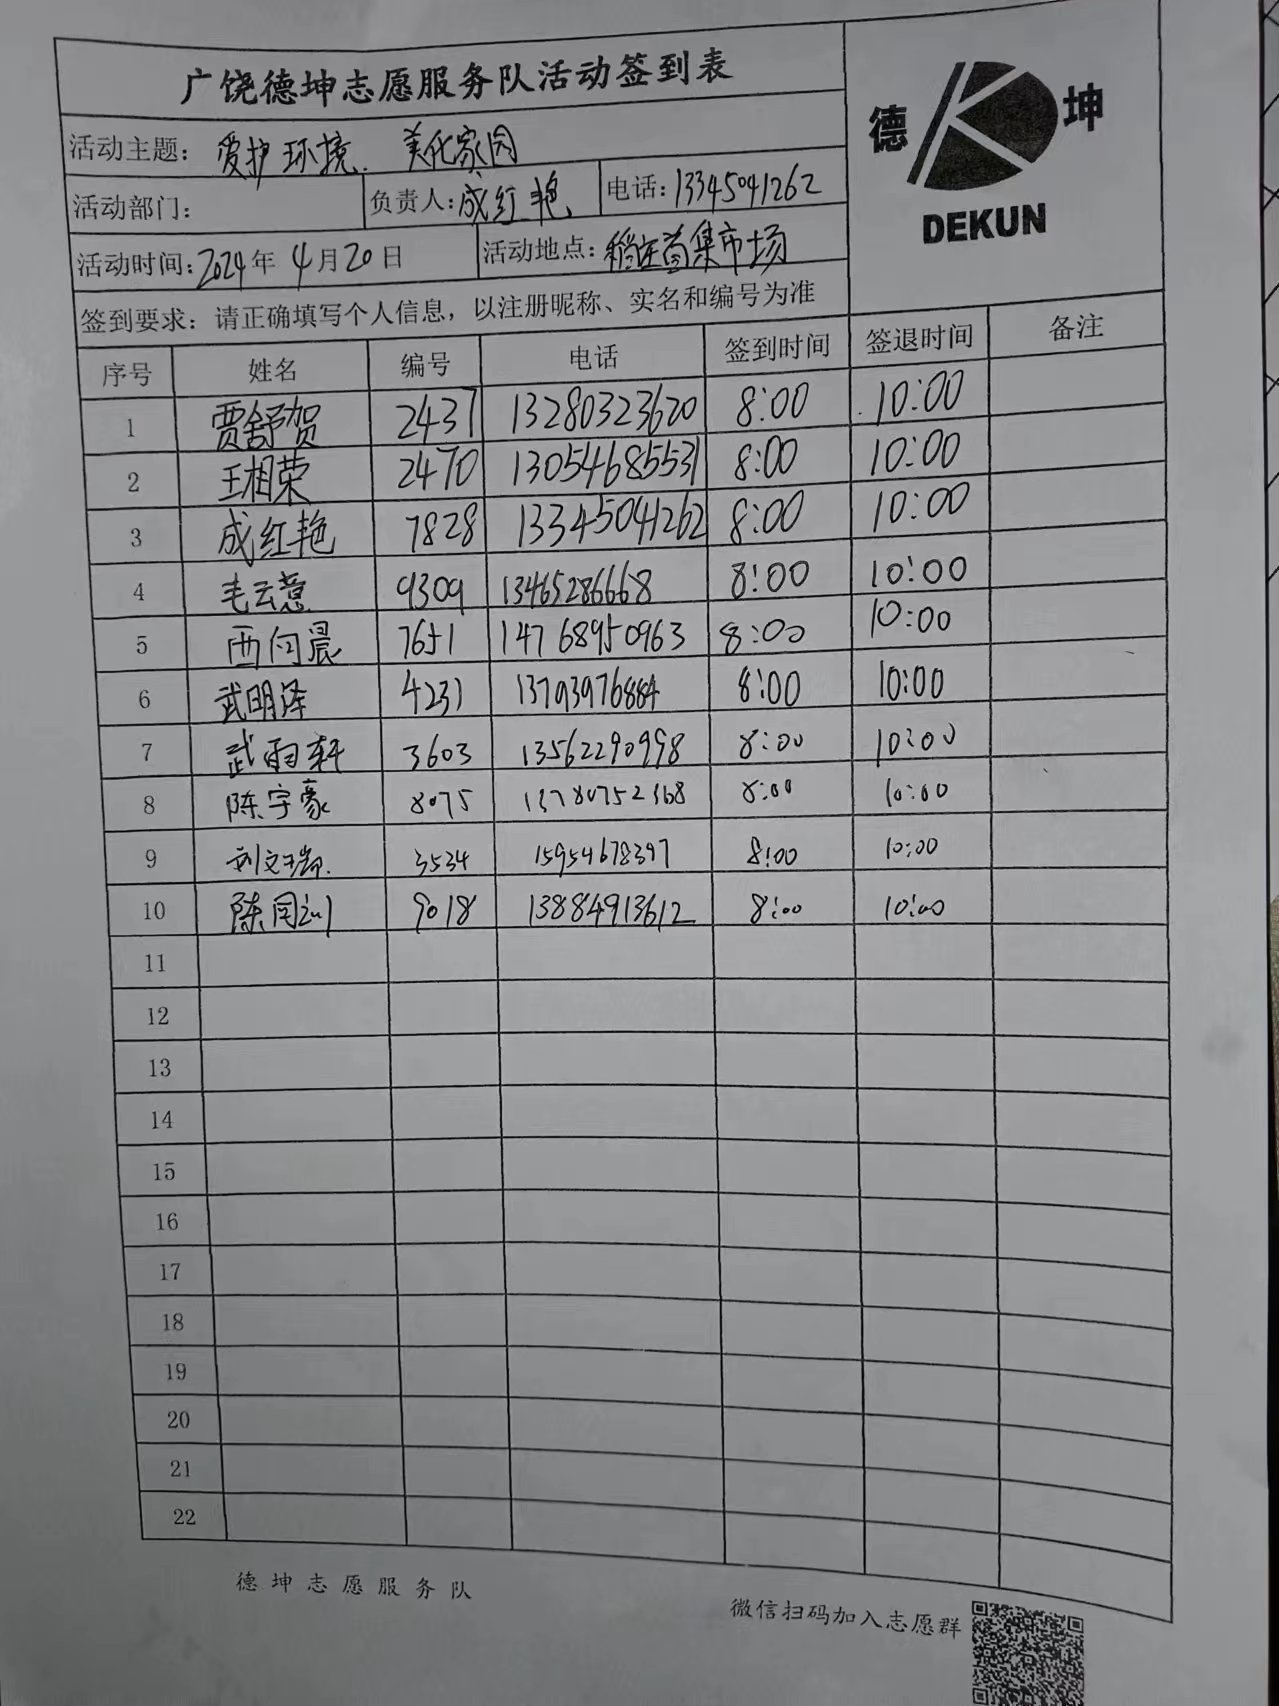 广饶德坤志愿服务队活动签到表
德 坤
DEKUN
活动主题: 爱护环境 美化家园
活动部门: 负责人: 成红艳 电话: 13345041262
活动时间: 2024年 4月20日 活动地点: 稻庄首集市场
签到要求: 请正确填写个人信息, 以注册昵称、实名和编号为准
序号 姓名 编号 电话 签到时间 签退时间 备注
1 贾舒贺 2437 13280323620 8:00 10:00
2 王相荣 2470 13054685531 8:00 10:00
3 成红艳 7828 13345041262 8:00 10:00
4 毛云意 9309 13465286668 8:00 10:00
5 西向晨 7651 14768950963 8:00 10:00
6 武明泽 4231 13793976884 8:00 10:00
7 武雨轩 3603 13562290998 8:00 10:00
8 陈宇豪 8075 13780752368 8:00 10:00
9 刘文 3534 15954678397 8:00 10:00
10 陈同 9018 13884913612 8:00 10:00
11
12
13
14
15
16
17
18
19
20
21
22
德坤志愿服务队
微信扫码加入志愿群